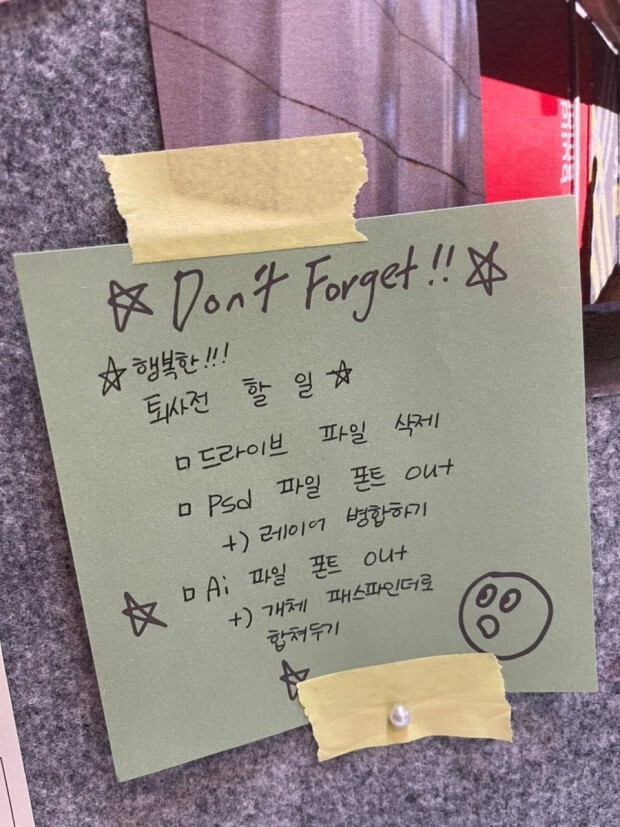 Don't Forget!!
행복한!!!
퇴사전 할 일
드라이브 파일 삭제
Psd 파일 폰트 out
+) 레이어 병합하기
Ai 파일 폰트 out
+) 개체 패스파인더로
합쳐두기